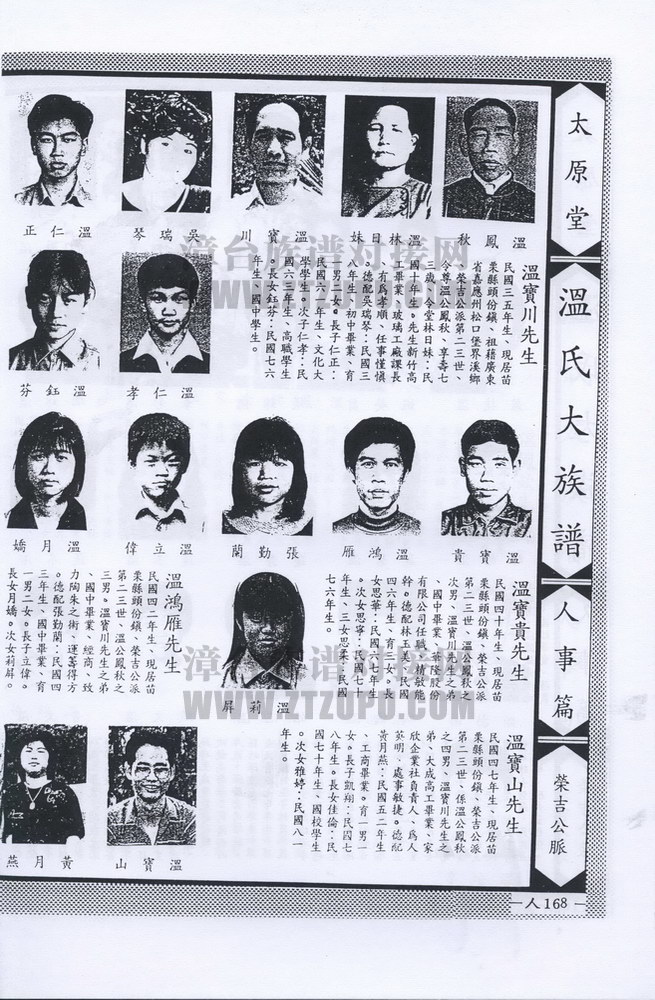 太原堂
溫氏大族譜
人事篇
榮吉公脈
人168
溫鳳秋
溫林日妹
溫寶川
吳瑞琴
溫仁正
溫寶川先生
民國三五年生、現居苗
栗縣頭份鎮、祖籍廣東
省嘉應州松口堡界溪鄉
、榮吉公派第二三世、
令尊溫公鳳秋、享壽七
三歲、令堂林日妹:民
國十年生。先生新竹高
工畢業、玻璃工廠課長
、有為孝順、任事慬慎
。德配吳瑞琴:民國三
八年生、初中畢業、育
二男一女。長子仁正:
民國六一年生、文化大
學學生。次子仁孝:民
國六三年生、高職學生
。長女鈺芬:民國七六
年生、國中學生。
溫仁孝
溫鈺芬
溫寶貴
溫鴻雁
張勤蘭
溫立偉
溫月嬌
溫寶貴先生
民國四十年生、現居苗
栗縣頭份鎮、榮吉公派
第二三世、溫公鳳秋之
次男、溫寶川先生之弟
、國中畢業、華隆股份
有限公司任職、精敏能
幹。德配林玉美:民國
四六年生、育三女。長
女思華:民國六七年生
。次女思寧:民國七十
年生、三女思柔:民國
七六年生。
溫莉屏
溫鴻雁先生
民國四二年生、現居苗
栗縣頭份鎮、榮吉公派
第二三世、溫公鳳秋之
三男。溫寶川先生之弟
、國中畢業、經商、致
力陶朱之術、運籌得方
。德配張勤蘭:民國四
三年生、國中畢業、育
一男二女。長子立偉。
長女月嬌。次女莉屏。
溫寶山先生
民國四七年生、現居苗
栗縣頭份鎮、榮吉公派
第二三世、係溫公鳳秋
之四男、溫寶川先生之
弟、大成高工畢業、家
欣企業社負責人、為人
英明、處事敏捷。德配
黃月燕:民國五二年生
、工商畢業。育一男一
女。長子凱翔:民國七
八年生。長女佳倫:民
國七十年生、國校學生
。次女雅婷:民國八一
年生。
溫寶山
黃月燕
漳台族谱对接网
WWW.ZTZUPU.COM
漳台族谱对接网
WWW.ZTZUPU.COM